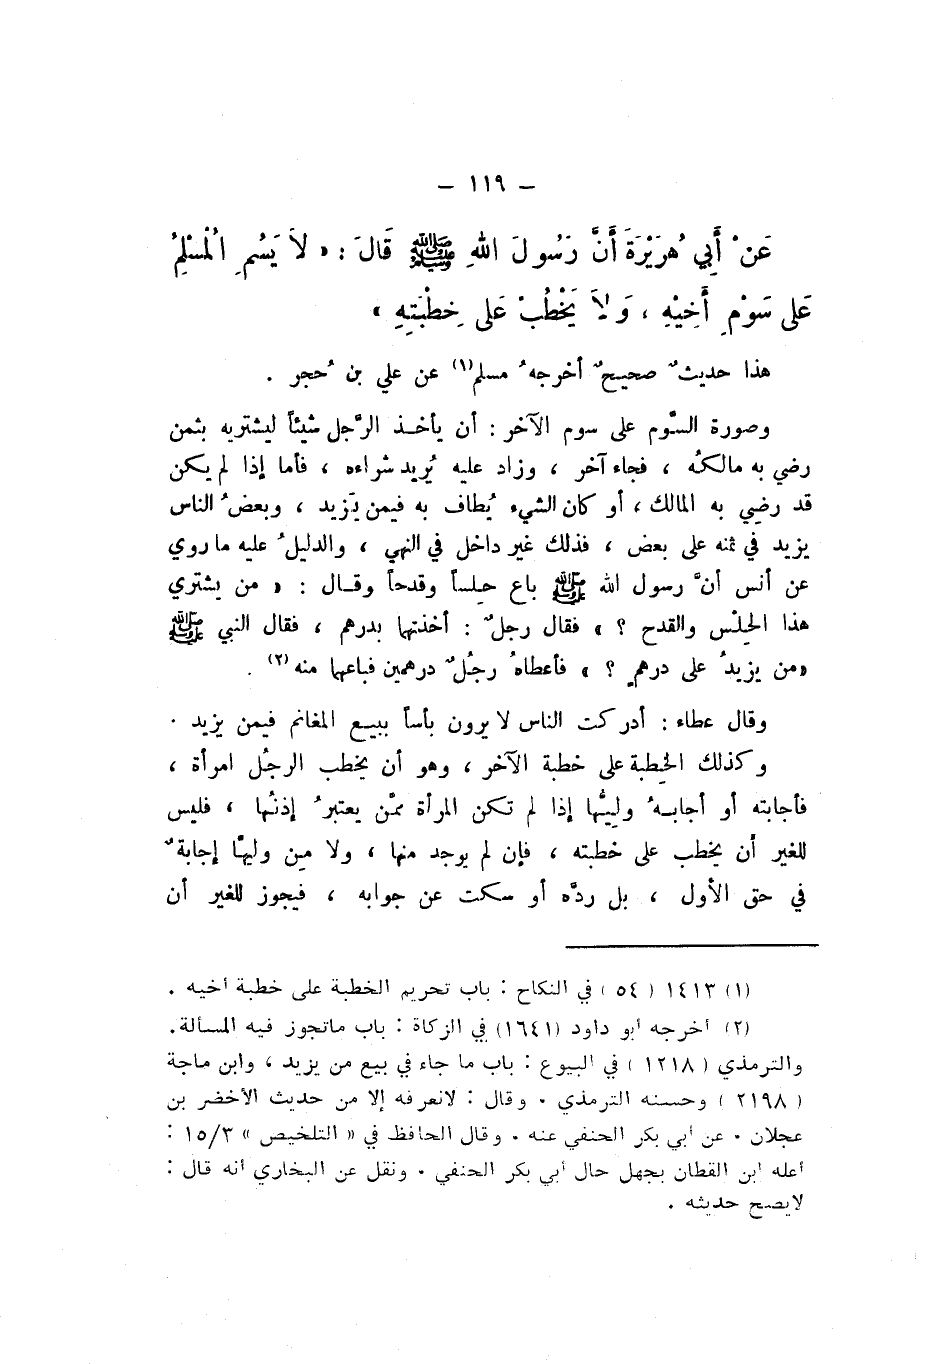 – ١١٩ –
عَنْ أَبِي هُرَيْرَةَ أَنَّ رَسُولَ اللهِ ﷺ قَالَ : « لاَ يَسُمِ الْمُسْلِمُ
عَلى سَوْمِ أَخِيْهِ ، وَلاَ يَخْطُبْ عَلى خِطْبَتِهِ »
هذا حديثٌ صحيحٌ أخرجهُ مسلم(١) عن علي بن حُجر .
وصورة السَّوم على سوم الآخر : أن يأخذ الرَّجل شيئاً ليشتريه بثمن
رضي به مالكُه ، فجاء آخر ، وزاد عليه يُريد شراءه ، فأما إذا لم يكن
قد رضِي به المالك ، أو كان الشيء يُطاف به فيمن يَزيد ، وبعضُ الناس
يزيد في ثمنه على بعض ، فذلك غير داخل في النهي ، والدليلُ عليه ما روي
عن أنس أنَّ رسول الله ﷺ باع حِلساً وقدحاً وقال : « من يشتري
هذا الحِلْس والقدح ؟ » فقال رجلٌ : أخذتها بدرهم ، فقال النبي ﷺ
«من يزيدُ على درهمٍ ؟ » فأعطاهُ رجُلٌ درهمين فباعها منه (٢) .
وقال عطاء : أدركت الناس لا يرون بأساً ببيع المغانم فيمن يزيد .
وكذلك الخِطبة على خطبة الآخر ، وهو أن يخطب الرجُل امرأة ،
فأجابته أو أجابـهُ وليُّها إذا لم تكن المرأة ممّن يعتبرُ إذنُها ، فليس
للغير أن يخطب على خطبته ، فإن لم يوجد منها ، ولا مِن وليها إجابةٌ
في حق الأول ، بل ردَّه أو سكت عن جوابه ، فيجوز للغير أن
(١) ١٤١٣ ( ٥٤ ) في النكاح : باب تحريم الخطبة على خطبة أخيه .
(٢) أخرجه أبو داود (١٦٤١) في الزكاة : باب ماتجوز فيه المسألة.
والترمذي ( ١٢١٨ ) في البيوع : باب ما جاء في بيع من يزيد ، وابن ماجة
( ٢١٩٨ ) وحسنه الترمذي . وقال : لانعرفه إلا من حديث الأخضر بن
عجلان . عن أبي بكر الحنفي عنه . وقال الحافظ في « التلخيص » ١٥/٣ :
أعله ابن القطان بجهل حال أبي بكر الحنفي . ونقل عن البخاري أنه قال :
لايصح حديثه .